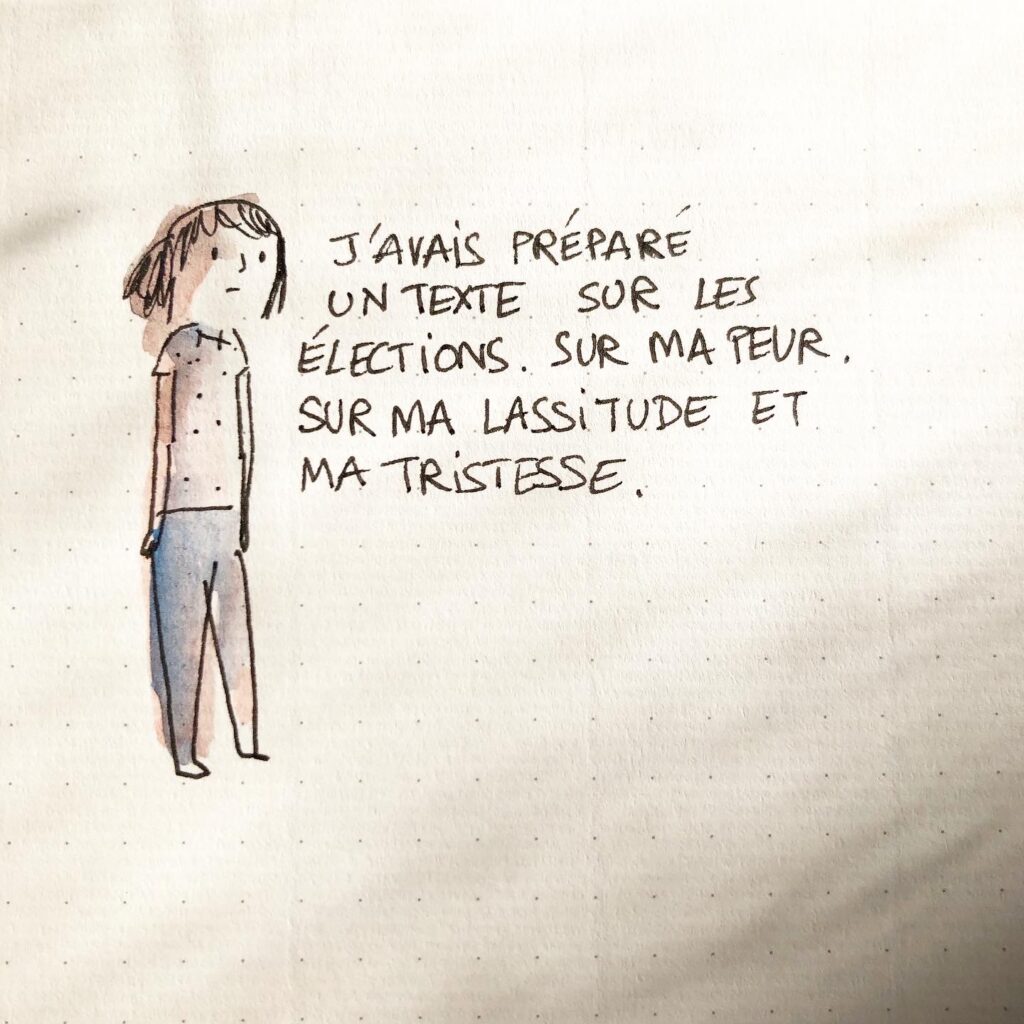 J'AVAIS PRÉPARÉ
UN TEXTE SUR LES
ÉLECTIONS. SUR MA PEUR.
SUR MA LASSITUDE ET
MA TRISTESSE.